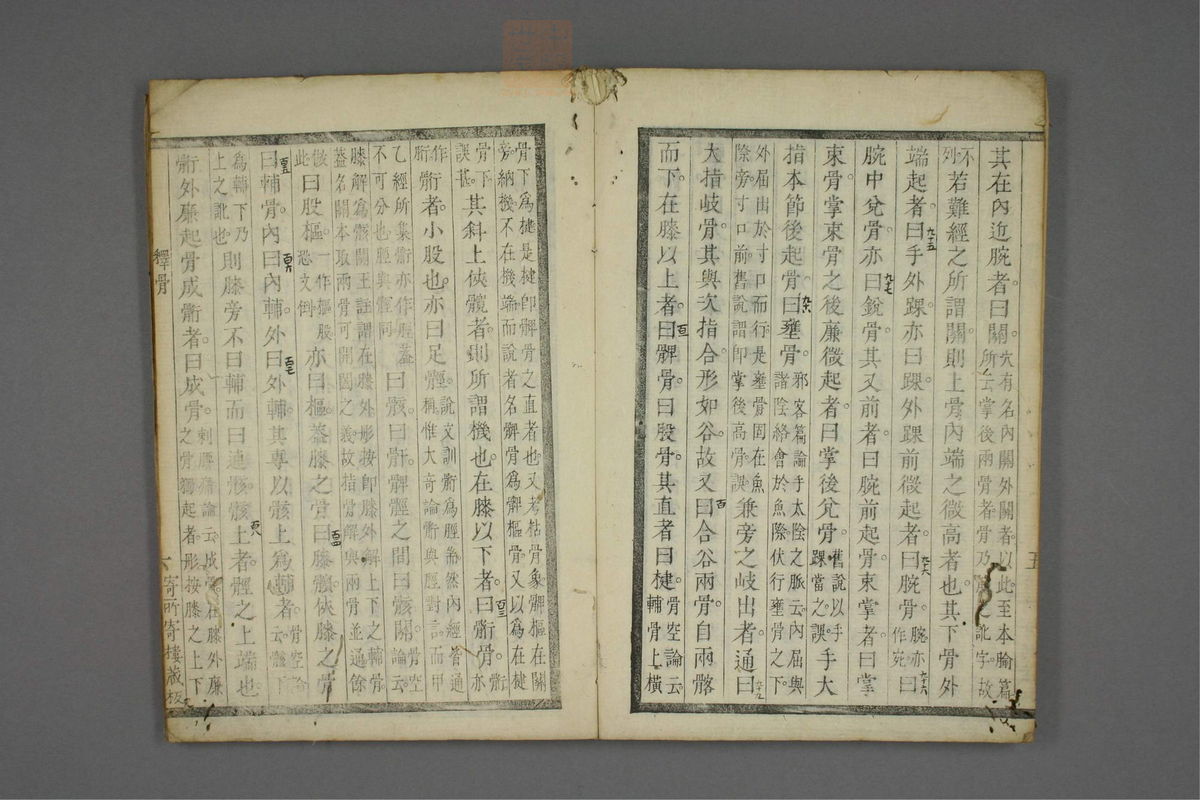 其在內近腕者曰關穴有名內關外關者以此至本腧篇所云掌後兩骨者骨乃之訛字故
不列若難經之所謂關則上骨內端之微高者也其下骨外
端起者曰手外踝亦曰踝外踝前微起者曰腕骨腕亦作完曰
腕中兌骨亦曰銳骨其又前者曰腕前起骨束掌者曰掌
束骨掌束骨之後廉微起者曰掌後兌骨舊說以手踝當之誤手大
指本節後起骨曰壅骨邪客篇論手太陰之脈云內屈與諸陰絡會於魚際伏行壅骨之下
外屈出於寸口而行是壅骨固在魚際旁寸口前舊說謂即掌後高骨誤兼旁之岐出者通曰
大指岐骨其與次指合形如谷故又曰合谷兩骨自兩髂
而下在膝以上者曰髀骨曰股骨其直者曰楗骨空論云輔骨上橫
骨下為楗是楗即髀骨之直者也又考枯骨象髀樞在關旁納機不在機端而說者名髀骨為髀樞骨又以為在楗
骨下誤甚其斜上俠髖者則所謂機也在膝以下者曰䯒骨䯒亦
作胻䯒者小股也亦曰足脛說文訓䯒為脛耑然內經皆通稱惟大奇論䯒與脛對言而甲
乙經所集䯒亦作脛蓋不可分也脛與䯒同曰骸曰骭髀脛之間曰骸關骨空論云
膝解為骸關王註謂在膝外形按即膝外解上下之輔骨蓋名關本取兩骨可開闔之義故指骨解與兩骨並通餘
骸此曰股樞一作樞股恐文倒亦曰樞蓋膝之骨曰膝髕俠膝之骨
曰輔骨內曰內輔外曰外輔其專以骸上為輔者骨空論云骸下
為輔下乃上之訛也則膝旁不曰輔而曰連骸骸上者脛之上端也
䯒外廉起骨成䯒者曰成骨刺腰痛論云成骨在膝外廉之骨獨起者形按膝之上下
釋骨
五
六
寄所寄樓藏板